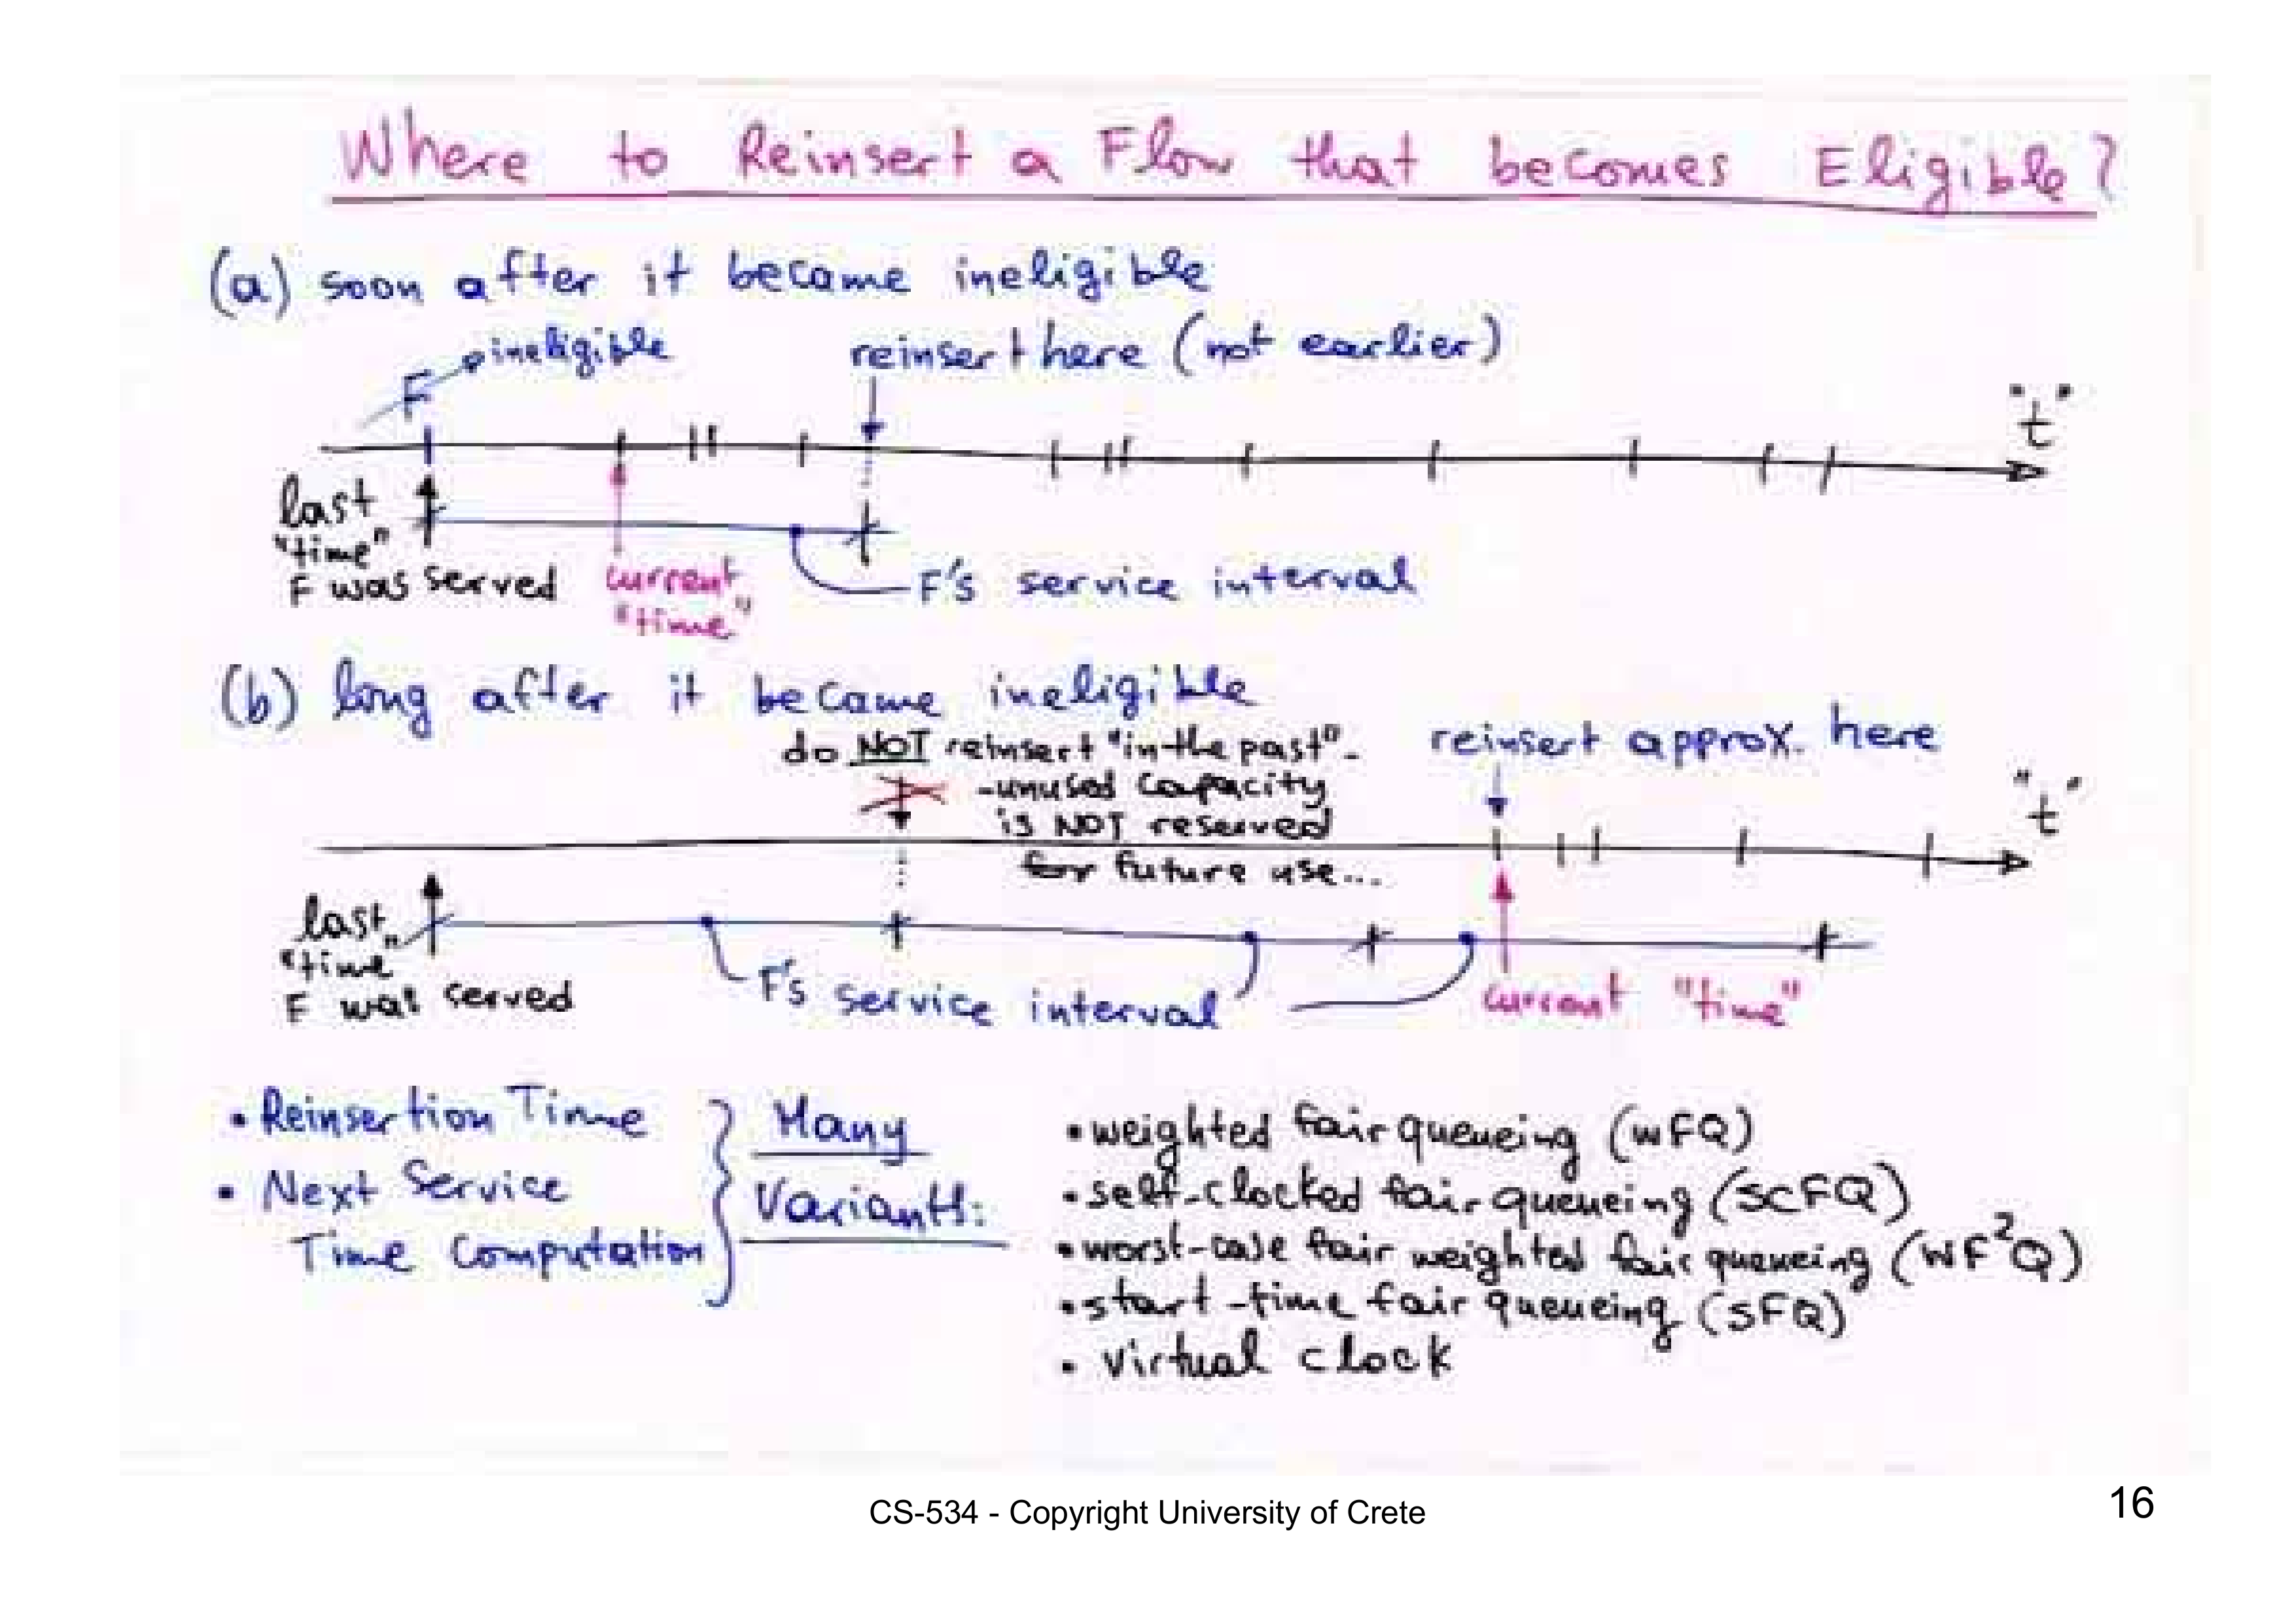 Where to Reinsert a Flow that becomes Eligible?
(a) soon after it became ineligible
ineligible
reinsert here (not earlier)
F
"t"
last
"time"
F was served
current
"time"
F's service interval
(b) long after it became ineligible
do NOT reinsert "in the past" -
reinsert approx. here
- unused capacity
is NOT reserved
for future use...
"t"
last
"time"
F was served
F's service interval
current "time"
• Reinsertion Time
• Next Service
Time Computation
Many
Variants:
• weighted fair queueing (WFQ)
• self-clocked fair queueing (SCFQ)
• worst-case fair weighted fair queueing (WF²Q)
• start-time fair queueing (SFQ)
• virtual clock
CS-534 - Copyright University of Crete
16